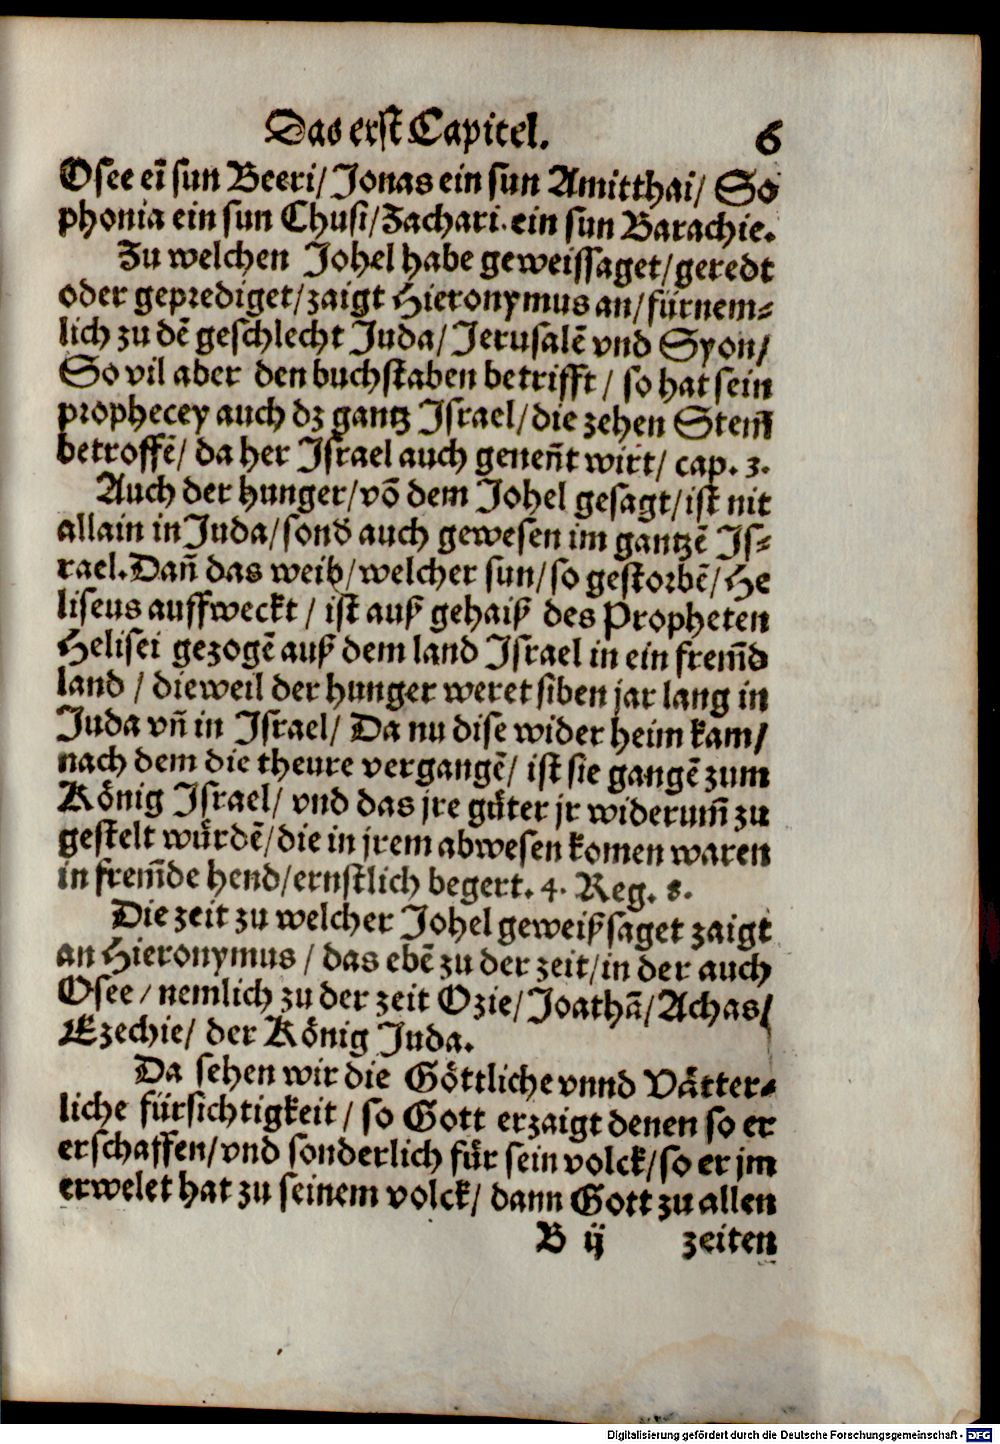 Das erst Capitel. 6
Osee eī sun Beeri/ Jonas ein sun Amitthai/ So
phonia ein sun Chusi/ Zachari. ein sun Barachie.
Zu welchen Johel habe geweissaget/ geredt
oder geprediget/ zaigt Hieronymus an/ fürnem-
lich zu dē geschlecht Juda/ Jerusalē vnd Syon/
So vil aber den buchstaben betrifft/ so hat sein
prophecey auch dz gantz Israel/ die zehen Stem̄
betroffē/ da her Israel auch genen̄t wirt/ cap. 3.
Auch der hunger/ vō dem Johel gesagt/ ist nit
allain in Juda/ sond auch gewesen im gantzē Is-
rael. Dan̄ das weib/ welcher sun/ so gestorbē/ He
liseus auffweckt/ ist auß gehaiß des Propheten
Helisei gezogē auß dem land Israel in ein frem̄d
land/ dieweil der hunger weret siben jar lang in
Juda vn̄ in Israel/ Da nu dise wider heim kam/
nach dem die theure vergangē/ ist sie gangē zum
König Israel/ vnd das jre güter jr widerum̄ zu
gestelt würdē/ die in jrem abwesen komen waren
in frem̄de hend/ ernstlich begert. 4. Reg. 8.
Die zeit zu welcher Johel geweißsaget zaigt
an Hieronymus/ das ebē zu der zeit/ in der auch
Osee/ nemlich zu der zeit Ozie/ Joathā/ Achas/
Ezechie/ der König Juda.
Da sehen wir die Göttliche vnnd Vätter-
liche fürsichtigkeit/ so Gott erzaigt denen so er
erschaffen/ vnd sonderlich für sein volck/ so er jm
erwelet hat zu seinem volck/ dann Gott zu allen
B ij zeiten
Digitalisierung gefördert durch die Deutsche Forschungsgemeinschaft - DFG